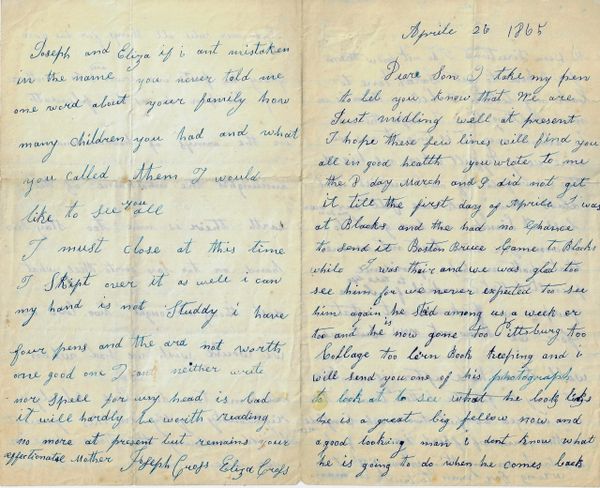 Aprile 26 1865
Deare Son I take my pen
to let you know that We are
Just midling well at present
I hope these few lines will find you
all in good healtth you wrote to me
the 8 day March and I did not get
it till the first day of Aprile I was
at Blacks and the had no Chance
to send it Boston Bruce Came to Blacks
while I was thair and we was glad too
see him for we never expected too see
him again he staid among us a week or
too and he is now gone too Pittsburg too
Collage too lern Book Keeping and i
will send you one of his photograph
to look at to see what the look lieks
he is a great big fellow now and
a good looking man i dont know what
he is going to do when he comes back
Joseph and Eliza if i ant mistoken
in the name you never told me
one word about your family how
many children you had and what
you called them I would
like to see you all
I must close at this time
I Skipt over it as well i can
my hand is not Studdy i have
four pens and the ard not worth
one good one I can neither write
nor spell for my head is bad
it will hardly be worth reading
no more at present but remains your
effectionate Mother Joseph Cross Eliza Cross